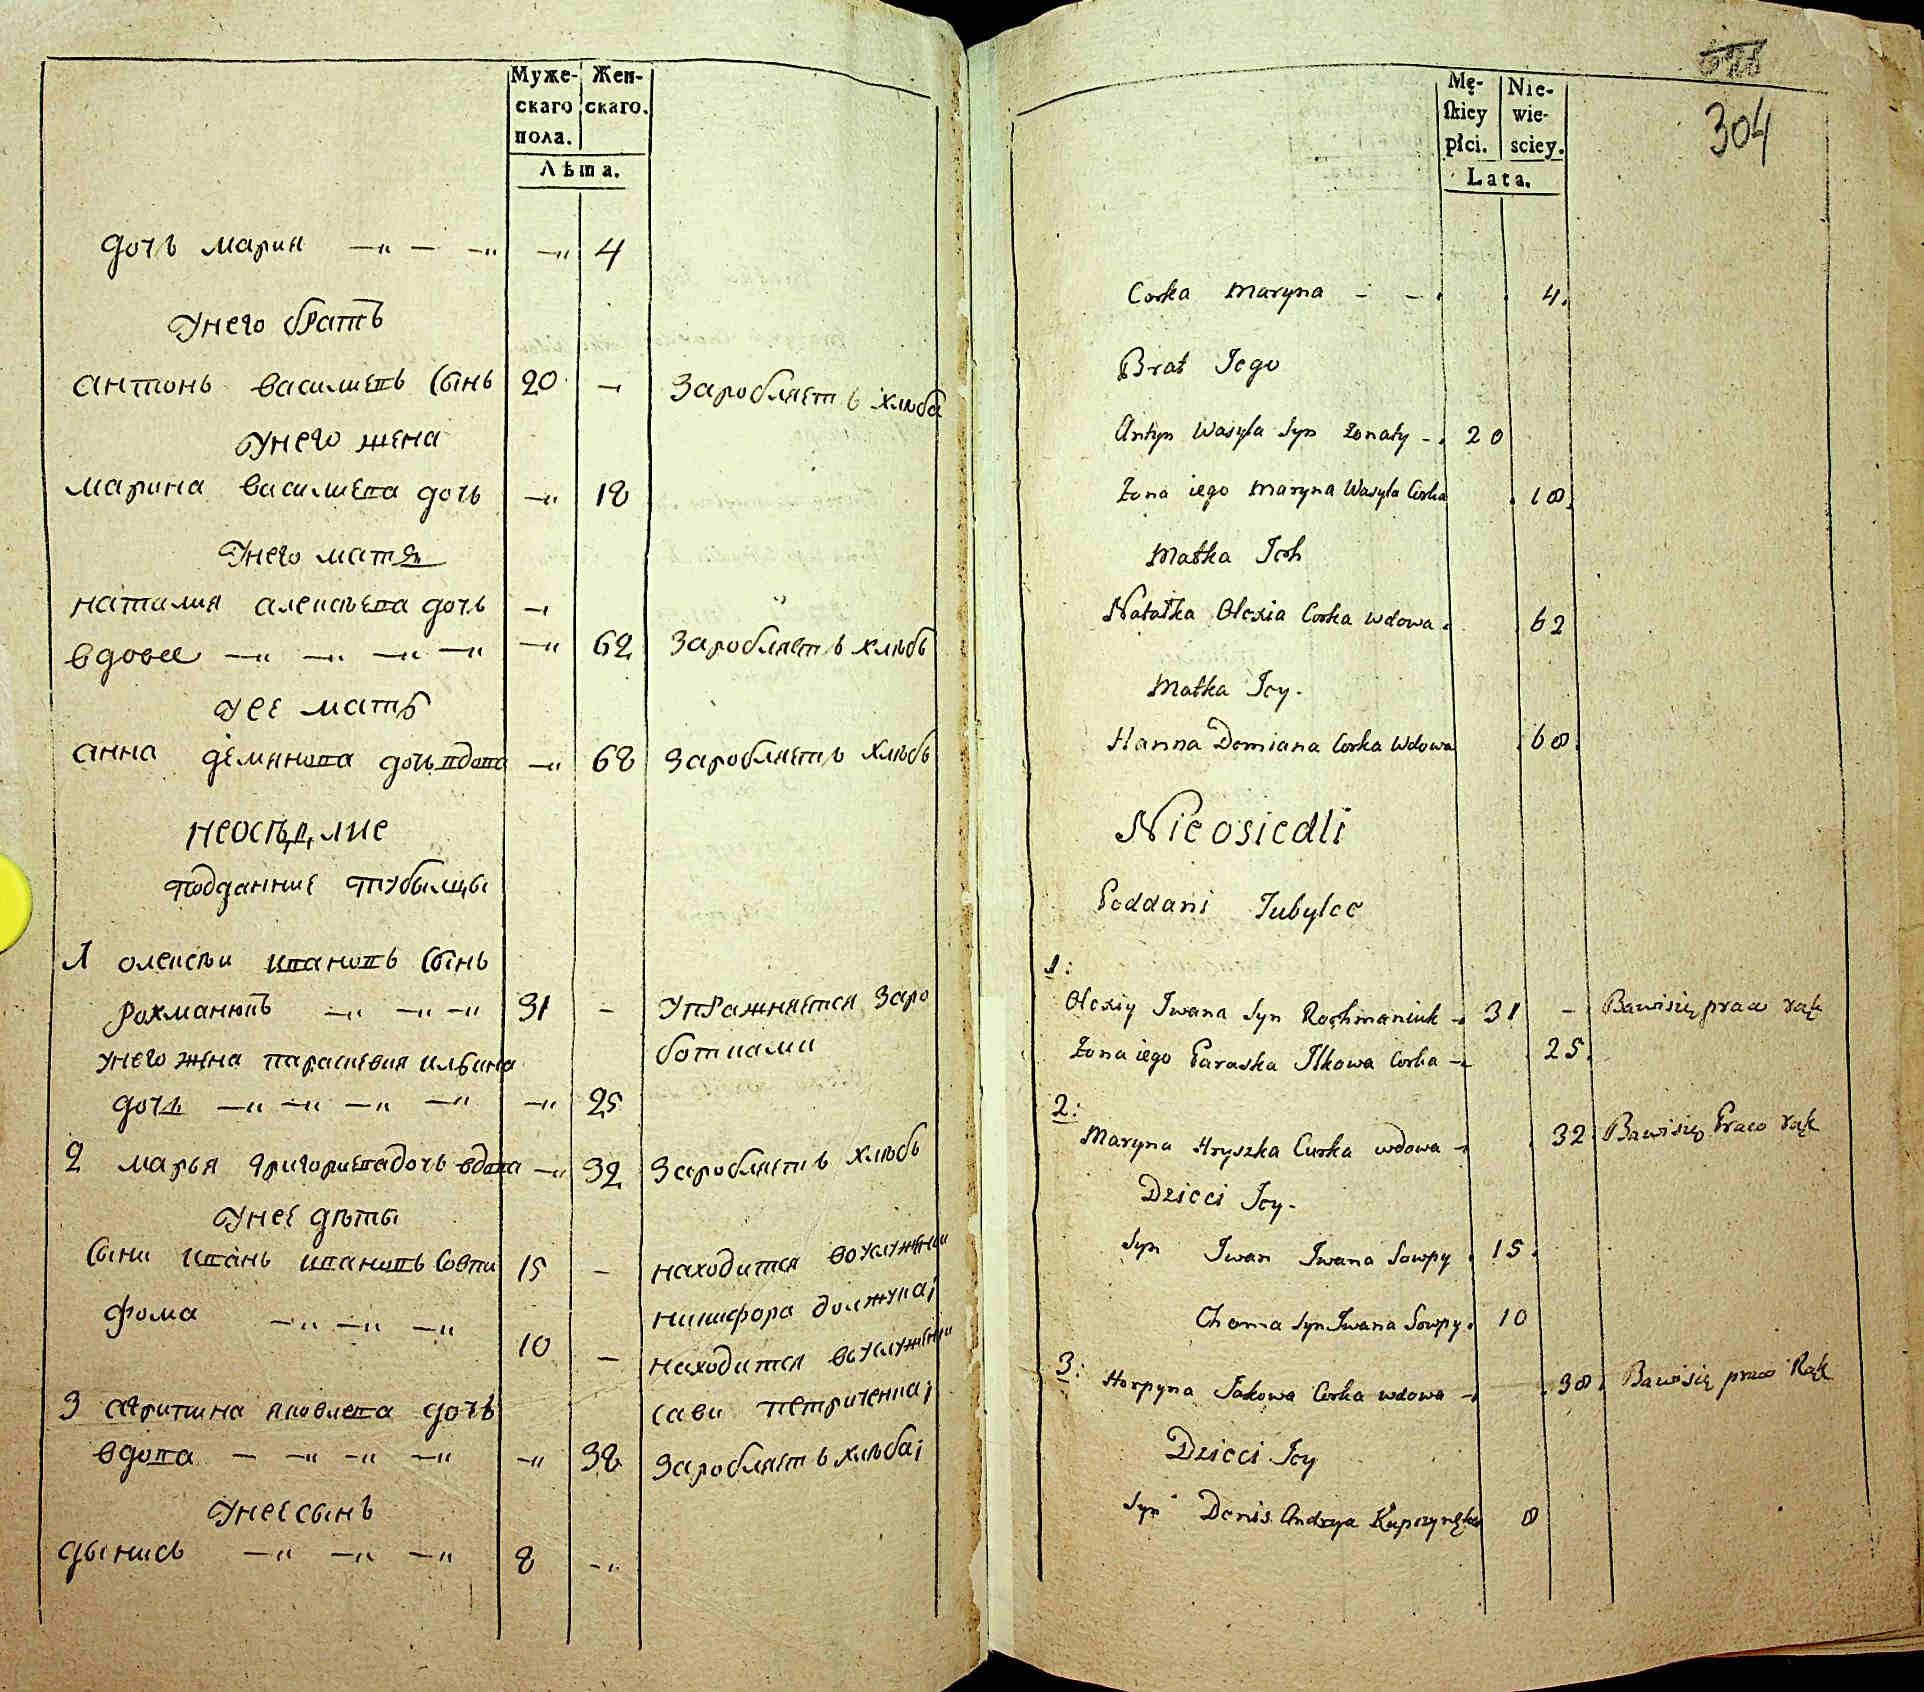 Муже- Жен-
скаго скаго.
пола.
Лѣта.
дочь мария —„ — —„ —„ 4
Унего братъ
антонъ василиевъ сынъ 20 — Заробляетъ хлѣба
Унего жена
марина василиева дочь —„ 18
Унего матъ
наталия алексѣева дочь —„
вдовее —„ —„ —„ —„ —„ 62 Заробляетъ хлѣбъ
Уее мать
анна демянова дочь вдова —„ 68 Заробляетъ хлѣбъ
неосѣдлие
подданние тубылцы
1 олексѣи ивановъ сынъ
рохманюкъ —„ —„ —„ 31 — упражняется Заро
ботками
унего жена параскевия ильина
дочь —„ —„ —„ —„ —„ 25
2 марья григориева дочь вдова —„ 32 Заробляетъ хлѣбъ
Унее дѣты
сыни иванъ ивановъ совпи 15 — находится воуслужении
никифора должука;
фома —„ —„ —„ 10 — находится воуслужении
сави петриченка;
3 агрипина яковлева дочь
вдова — —„ —„ —„ —„ 38 Заробляетъ хлѣба;
Унее сынъ
дынисъ —„ —„ —„ 8 —„
304
Mę- Nie-
skiey wie-
płci. sciey.
Lata.
Corka Maryna - - . 4.
Brat Jego
Antyn Wasyla Syn żonaty -. 20
Żona iego Maryna Wasyla Corka . 18.
Matka Ich
Natałka Olexia Corka wdowa. 62
Matka Jey.
Hanna Demiana Corka Wdowa . 68.
Nieosiedli
Poddani Tubylce
1:
Olexiy Iwana Syn Rochmaniuk -. 31 - Bawisię prace rąk
Żona iego Paraska Ilkowa Corka -. . 25.
2:
Maryna Hryszka Curka wdowa -. . 32. Bawisię Prace rąk
Dzieci Jey.
Syn Iwan Iwana Sowpy . 15.
Choma Syn Iwana Sowpy. 10
3: Horpyna Jakowa Corka wdowa -. . 38. Bawisię prace Rąk
Dzieci Jey
Syn Denis Andrya 8